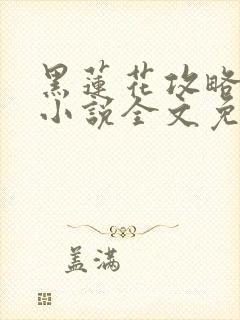 黑蓮花攻略
小說全文免
盖满